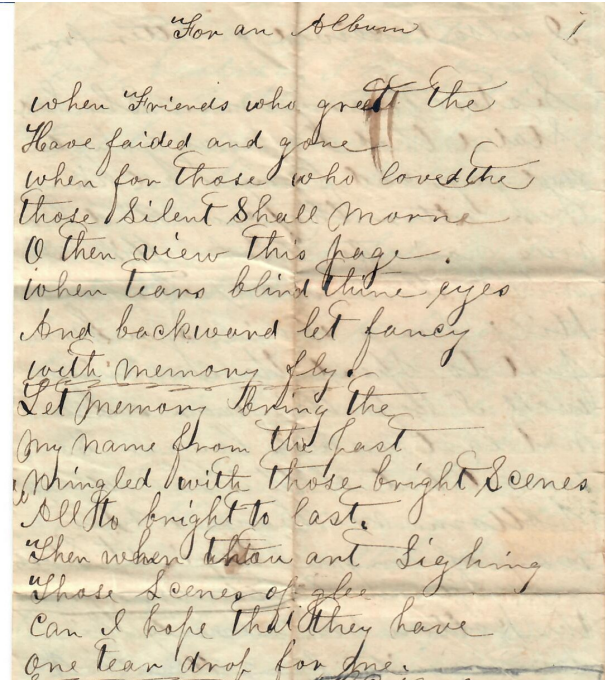 For an Album 1
when Friends who greet the
Have faided and gone
when for those who loved the
those Silent Shall morne
O then view this page.
when tears blind thine eyes
And backward let fancy
with memory fly.
Let memory bring the
my name from the past
mingled with those bright Scenes
All to bright to last.
Then when thou art Sighing
Those Scenes of glee
can I hope that they have
one tear drop for me.